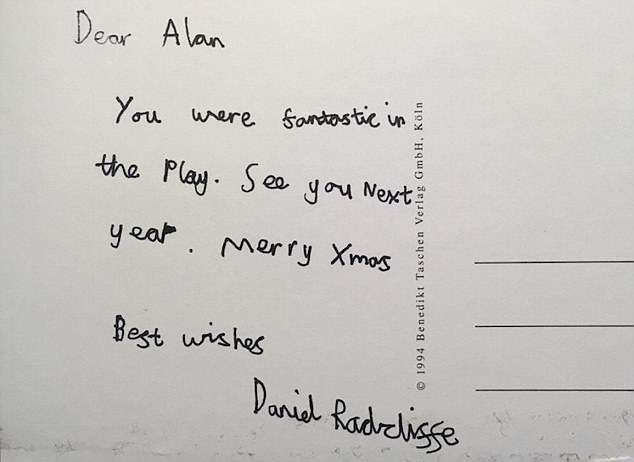 Dear Alan
You were fantastic in
the Play. See you Next
year. Merry Xmas
Best wishes
Daniel Radcliffe
© 1994 Benedikt Taschen Verlag GmbH, Köln